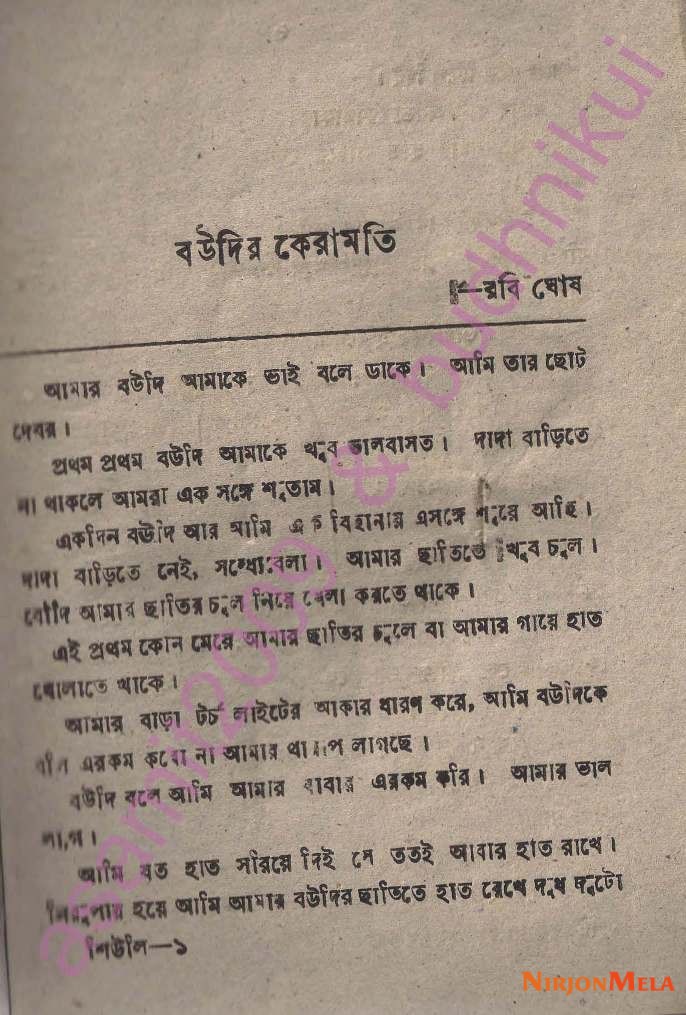 বউদির কেরামতি
—রবি ঘোষ
আমার বউদি আমাকে ভাই বলে ডাকে। আমি তার ছোট
দেবর।
প্রথম প্রথম বউদি আমাকে খুব ভালবাসত। দাদা বাড়িতে
না থাকলে আমরা এক সঙ্গে শুতাম।
একদিন বউদি আর আমি এক বিছানার এসঙ্গে শুয়ে আছি।
দাদা বাড়িতে নেই, সন্ধ্যেবেলা। আমার ছাতিতে খুব চুল।
বৌদি আমার ছাতির চুল নিয়ে খেলা করতে থাকে।
এই প্রথম কোন মেয়ে আমার ছাতির চুলে বা আমার গায়ে হাত
বোলাতে থাকে।
আমার বাড়া টর্চ লাইটের আকার ধারণ করে, আমি বউদিকে
বলি এরকম করো না আমার খারাপ লাগছে।
বউদি বলে আমি আমার বাবার এরকম করি। আমার ভাল
লাগে।
আমি যত হাত সরিয়ে নিই সে ততই আবার হাত রাখে।
নিরুপায় হয়ে আমি আমার বউদির ছাতিতে হাত রেখে দুধ দুটো
শিউলি—১
asanii2009 & budhnikui
NIRJONMELA